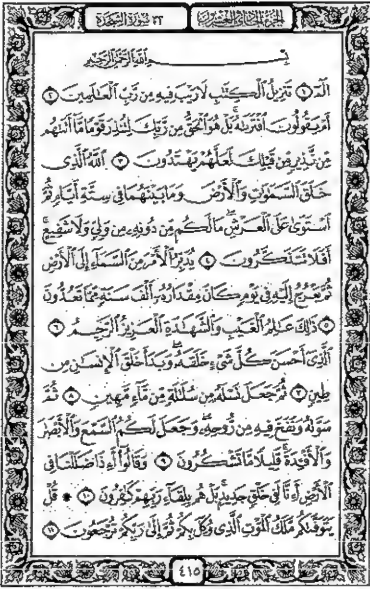 الجزء الحادي والعشرون
٣٢ سورة السجدة
بسم الله الرحمن الرحيم
الٓمٓ ۝١ تَنزِيلُ ٱلْكِتَٰبِ لَا رَيْبَ فِيهِ مِن رَّبِّ ٱلْعَٰلَمِينَ ۝٢
أَمْ يَقُولُونَ ٱفْتَرَىٰهُ بَلْ هُوَ ٱلْحَقُّ مِن رَّبِّكَ لِتُنذِرَ قَوْمًا مَّآ أَتَىٰهُم
مِّن نَّذِيرٍ مِّن قَبْلِكَ لَعَلَّهُمْ يَهْتَدُونَ ۝٣ ٱللَّهُ ٱلَّذِى
خَلَقَ ٱلسَّمَٰوَٰتِ وَٱلْأَرْضَ وَمَا بَيْنَهُمَا فِى سِتَّةِ أَيَّامٍ ثُمَّ
ٱسْتَوَىٰ عَلَى ٱلْعَرْشِ مَا لَكُم مِّن دُونِهِۦ مِن وَلِىٍّ وَلَا شَفِيعٍ
أَفَلَا تَتَذَكَّرُونَ ۝٤ يُدَبِّرُ ٱلْأَمْرَ مِنَ ٱلسَّمَآءِ إِلَى ٱلْأَرْضِ
ثُمَّ يَعْرُجُ إِلَيْهِ فِى يَوْمٍ كَانَ مِقْدَارُهُۥٓ أَلْفَ سَنَةٍ مِّمَّا تَعُدُّونَ
۝٥ ذَٰلِكَ عَٰلِمُ ٱلْغَيْبِ وَٱلشَّهَٰدَةِ ٱلْعَزِيزُ ٱلرَّحِيمُ ۝٦
ٱلَّذِىٓ أَحْسَنَ كُلَّ شَىْءٍ خَلَقَهُۥ وَبَدَأَ خَلْقَ ٱلْإِنسَٰنِ مِن
طِينٍ ۝٧ ثُمَّ جَعَلَ نَسْلَهُۥ مِن سُلَٰلَةٍ مِّن مَّآءٍ مَّهِينٍ ۝٨ ثُمَّ
سَوَّىٰهُ وَنَفَخَ فِيهِ مِن رُّوحِهِۦ وَجَعَلَ لَكُمُ ٱلسَّمْعَ وَٱلْأَبْصَٰرَ
وَٱلْأَفْـِٔدَةَ قَلِيلًا مَّا تَشْكُرُونَ ۝٩ وَقَالُوٓا۟ أَءِذَا ضَلَلْنَا فِى
ٱلْأَرْضِ أَءِنَّا لَفِى خَلْقٍ جَدِيدٍۭ بَلْ هُم بِلِقَآءِ رَبِّهِمْ كَٰفِرُونَ ۝١٠ ۞ قُلْ
يَتَوَفَّىٰكُم مَّلَكُ ٱلْمَوْتِ ٱلَّذِى وُكِّلَ بِكُمْ ثُمَّ إِلَىٰ رَبِّكُمْ تُرْجَعُونَ ۝١١
٤١٥